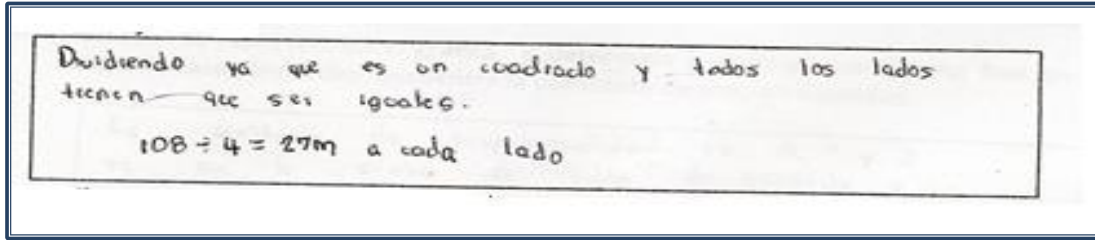 Dividiendo ya que es un cuadrado y todos los lados
tienen que ser iguales.
108 ÷ 4 = 27m a cada lado